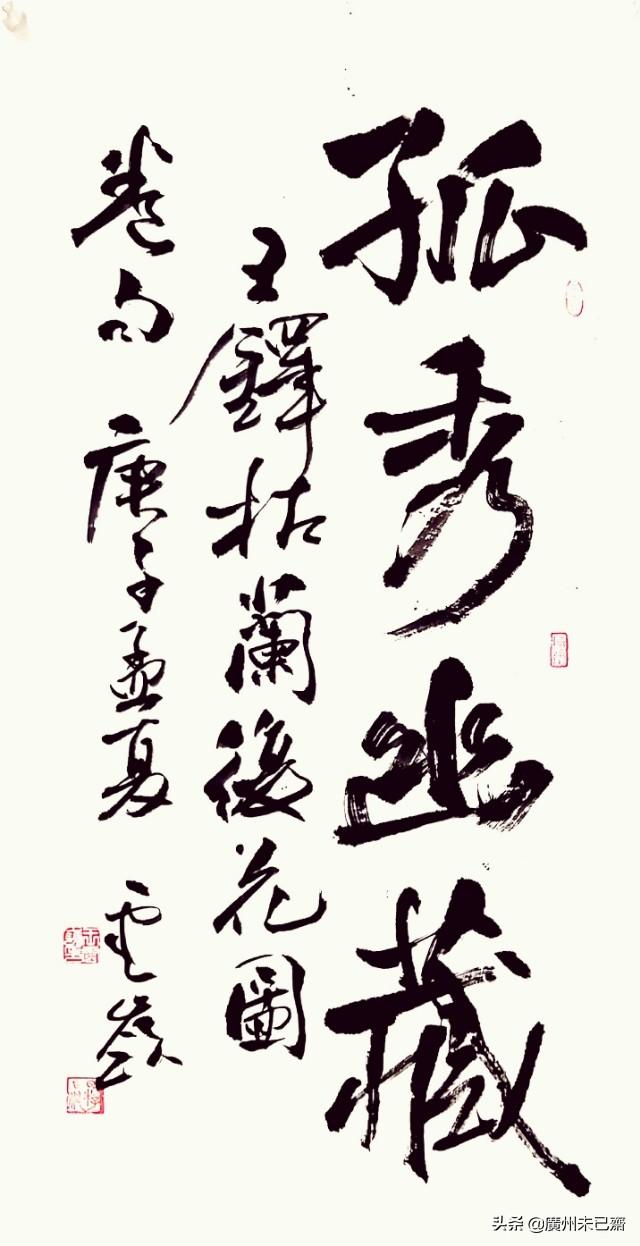 孤秀幽藏
王鐸枯蘭復花圖
卷句 庚子孟夏 雲嶺
头条 @廣州未已齋